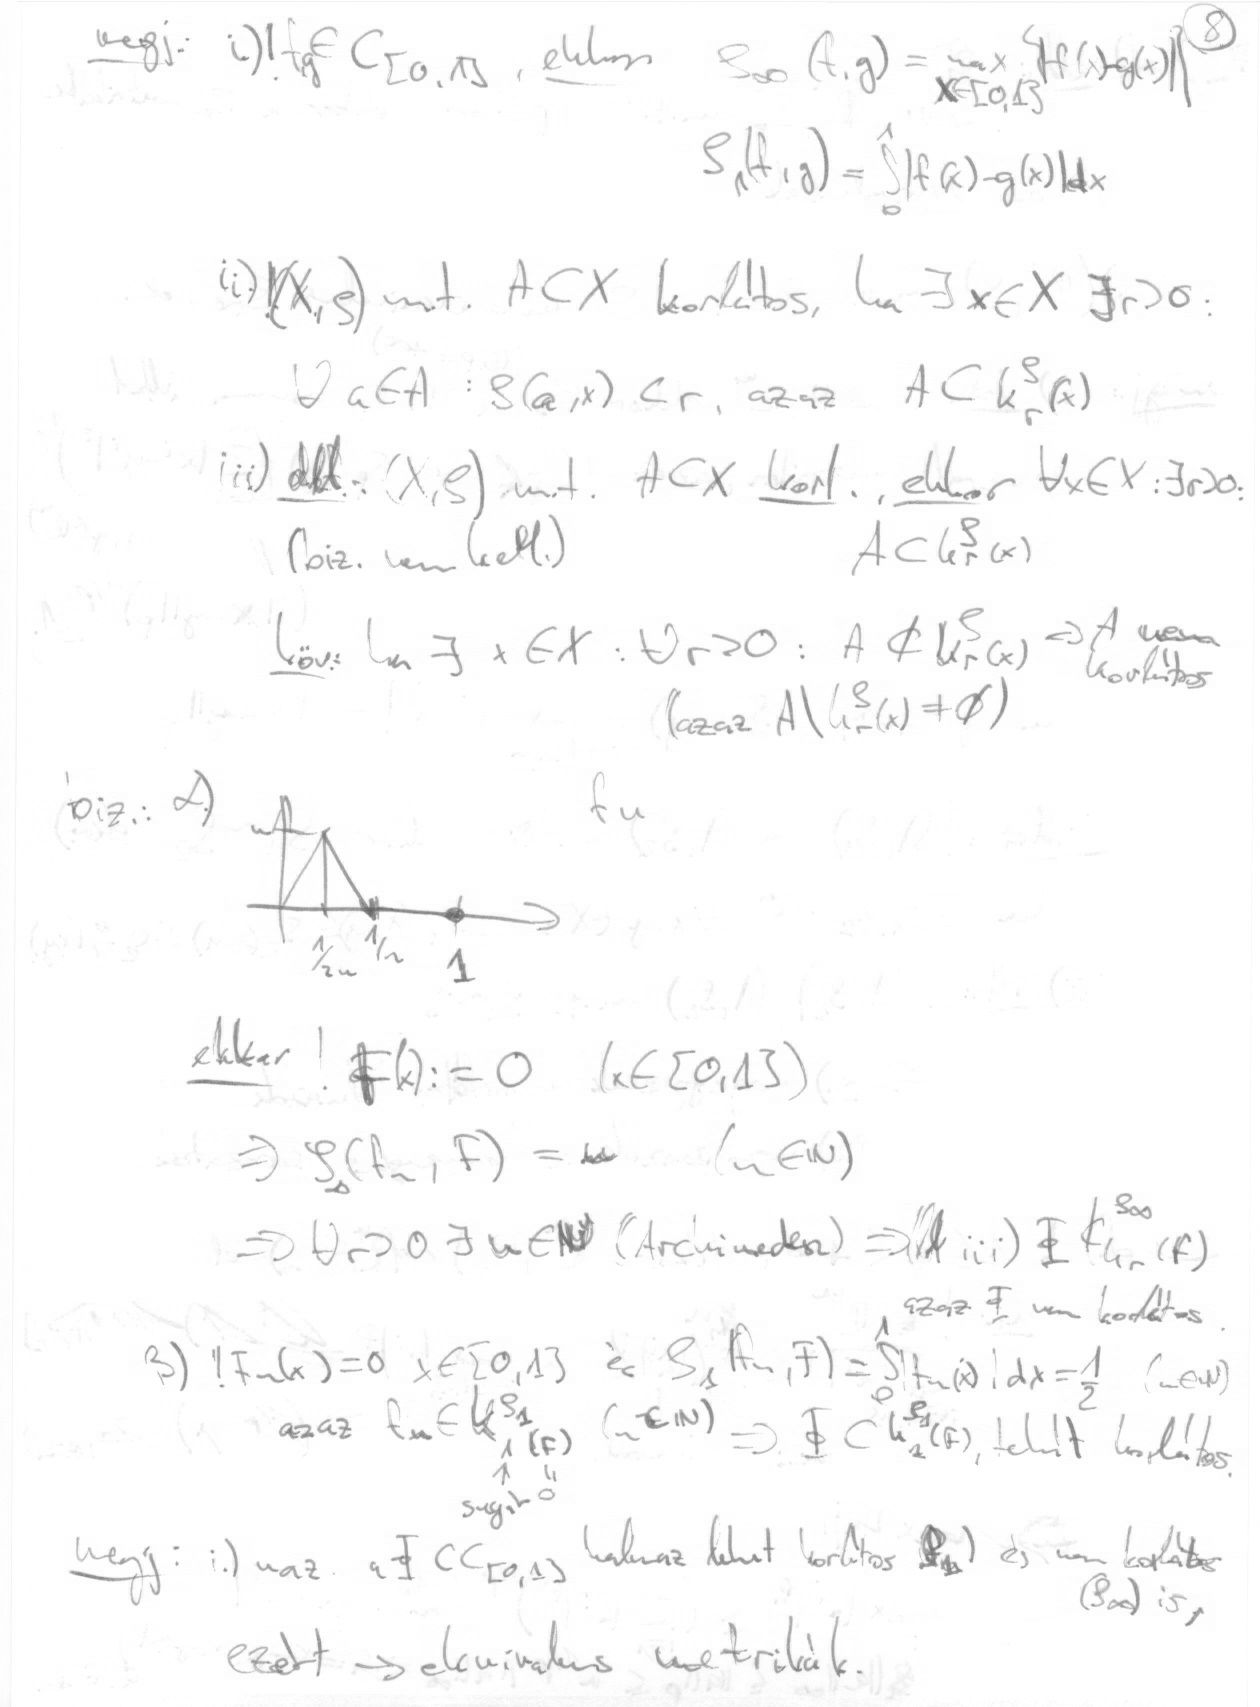 8
megj: i) ! f,g ∈ C[0,1], ekkor ρ∞(f,g) = max {|f(x)-g(x)|}
x∈[0,1]
ρ₁(f,g) = ∫₀¹ |f(x)-g(x)|dx
ii) !(X,ρ) m.t. A⊂X korlátos, ha ∃x∈X ∃r>0:
∀a∈A : ρ(a,x) < r, azaz A⊂k_r^ρ(x)
iii) áll.: (X,ρ) m.t. A⊂X korl., ekkor ∀x∈X:∃r>0:
(biz. nem kell.) A⊂k_r^ρ(x)
köv: ha ∃ x∈X : ∀r>0 : A ⊄ k_r^ρ(x) ⇒ A nem korlátos
(azaz A\k_r^ρ(x) ≠ ∅)
biz.: α) fn
n
1/2n 1/n 1
ekkor ! F(x):=0 (x∈[0,1])
⇒ ρ∞(fn, F) = n (n∈ℕ)
⇒ ∀r>0 ∃n∈ℕ (Archimedesz) ⇒ iii) Φ ⊄ k_r^ρ∞(F)
azaz Φ nem korlátos.
β) ! F(x)=0 x∈[0,1] és ρ₁(fn,F) = ∫₀¹ |fn(x)|dx = 1/2 (n∈ℕ)
azaz fn∈k₁^ρ₁(F) (n∈ℕ) ⇒ Φ ⊂ k₁^ρ₁(F), tehát korlátos.
↑ =
sugár 0
megj: i.) u.az. a Φ ⊂ C[0,1] halmaz lehet korlátos (ρ₁) és nem korlátos
(ρ∞) is,
ezért → ekvivalens metrikák.